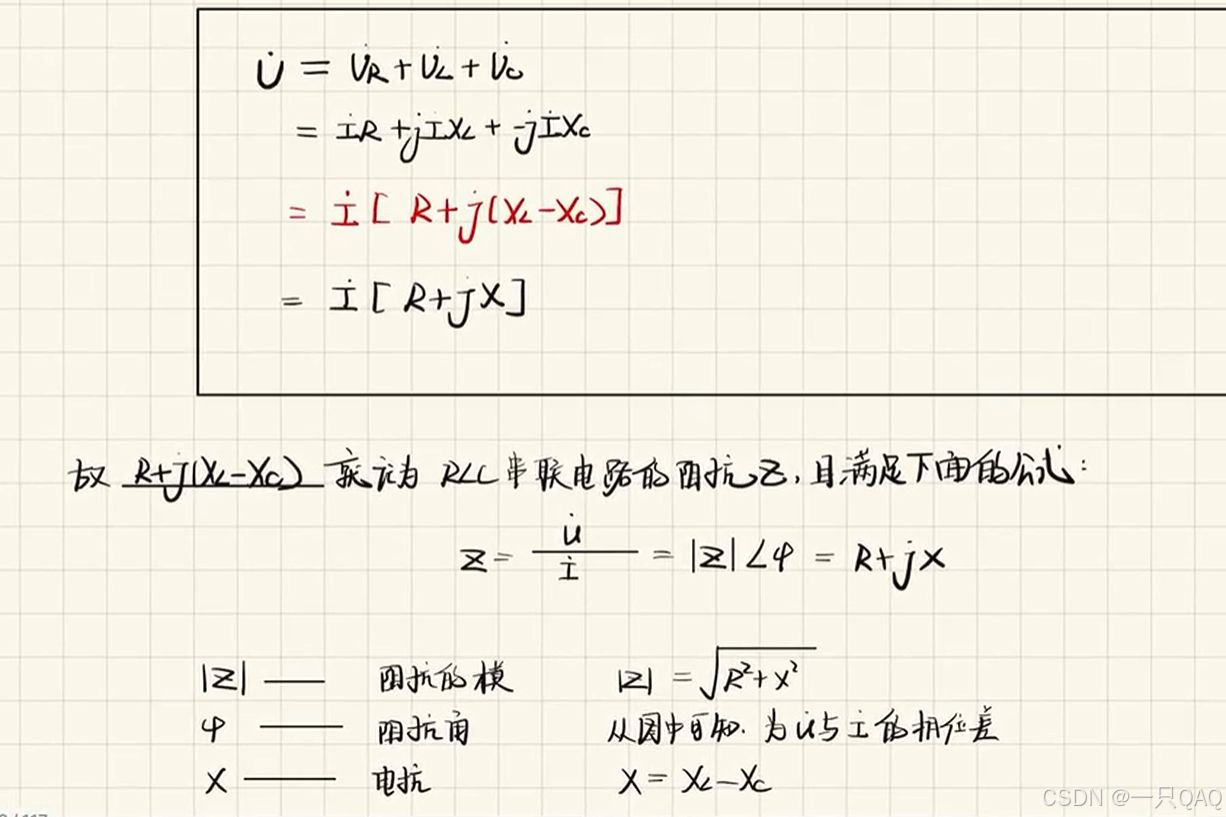 U̇ = U̇R + U̇L + U̇C
= İR + jİXL + -jİXC
= İ[ R+j(XL-XC)]
= İ[ R+jX]
故 R+j(XL-XC) 就认为 RLC串联电路的阻抗Z,且满足下面的公式:
Z = U̇/İ = |Z|∠φ = R+jX
|Z| —— 阻抗的模 |Z| = √(R²+X²)
φ —— 阻抗角 从图中可知.为u̇与i̇的相位差
X —— 电抗 X = XL-XC
CSDN @一只QAQ